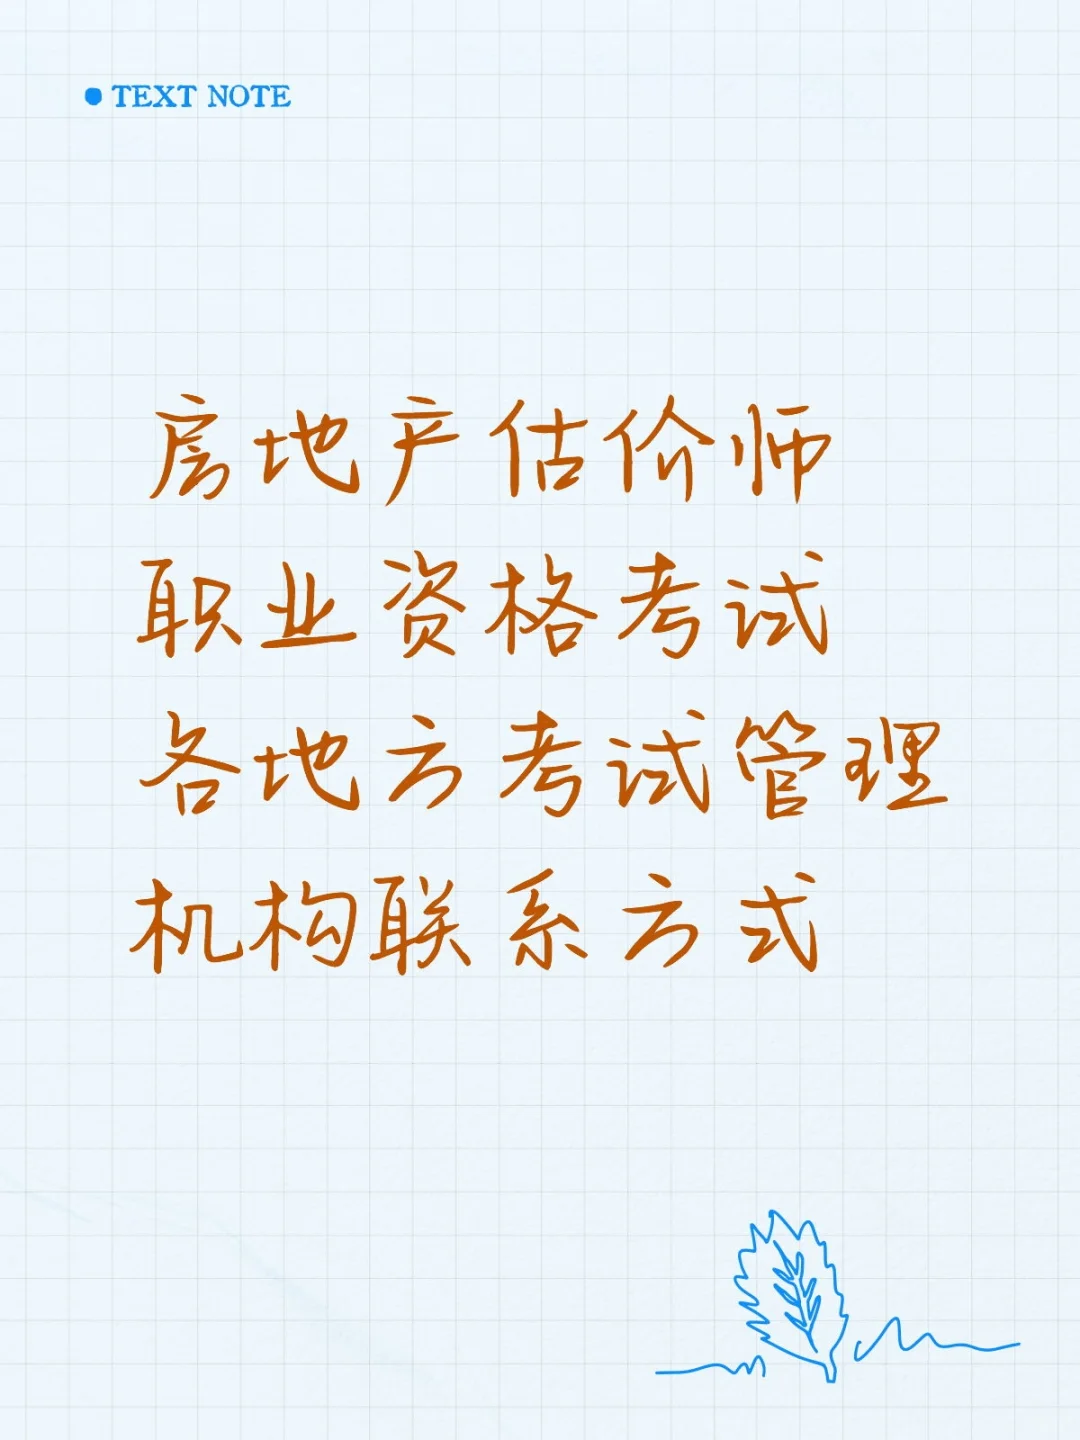 TEXT NOTE
房地产估价师
职业资格考试
各地方考试管理
机构联系方式